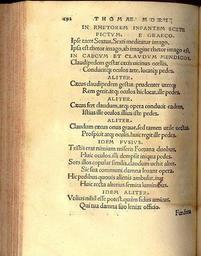 THOMAE MORI
IN RHETOREM INFANTEM SCITE
PICTVM, E GRAECO.
Ipse tacet Sextus, Sexti meditatur imago.
Ipsa est rhetor imago, ipse imaginis rhetor imago est.
IN CAECVM ET CLAVDVM MENDICOS.
Claudipedem gestat cæcis uicinus ocellis,
Conducitque oculos arte, locatque pedes.
ALITER.
Cæcus claudipedem gestat prudenter uterque
Rem gerit, atque oculos hic locat, ille pedes.
ALITER.
Cæcus fert claudum, atque opera conducit eadem,
Istius ille oculos, illius iste pedes.
ALITER.
Claudum cæcus onus graue, sed tamen utile uectat
Prospicit atque oculis huic regit ille pedes.
IDEM FVSIVS.
Tristis erat nimium miseris Fortuna duobus,
Huic oculos, illi dempsit iniqua pedes.
Sors illos copulat similis, claudum uehit alter.
Sic sua communi damna leuant opera.
Hic pedibus quouis alienis ambulat, ing
Huic recta alterius semita luminibus.
IDEM ALITER.
Vtilius nihil esse potest, quàm fidus amicus,
Qui tua damna suo leniat officio.
Fœdera